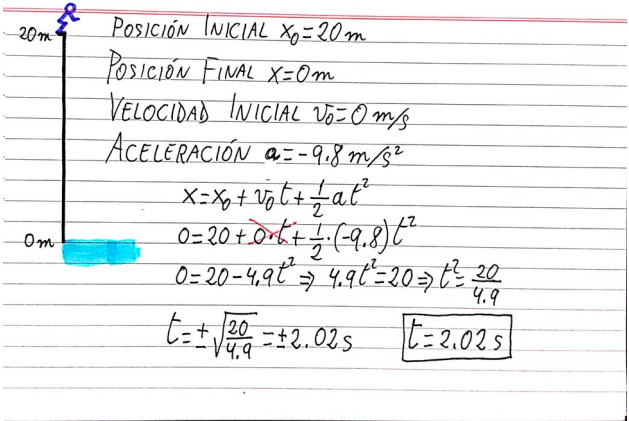 20m
POSICIÓN INICIAL x₀=20m
POSICIÓN FINAL x=0m
VELOCIDAD INICIAL v₀=0 m/s
ACELERACIÓN a=-9.8 m/s²
x=x₀+v₀t+½at²
0m
0=20+0·t+½·(-9.8)t²
0=20-4.9t² ⇒ 4.9t²=20 ⇒ t²=20/4.9
t=±√(20/4.9)=±2.02s t=2.02 s